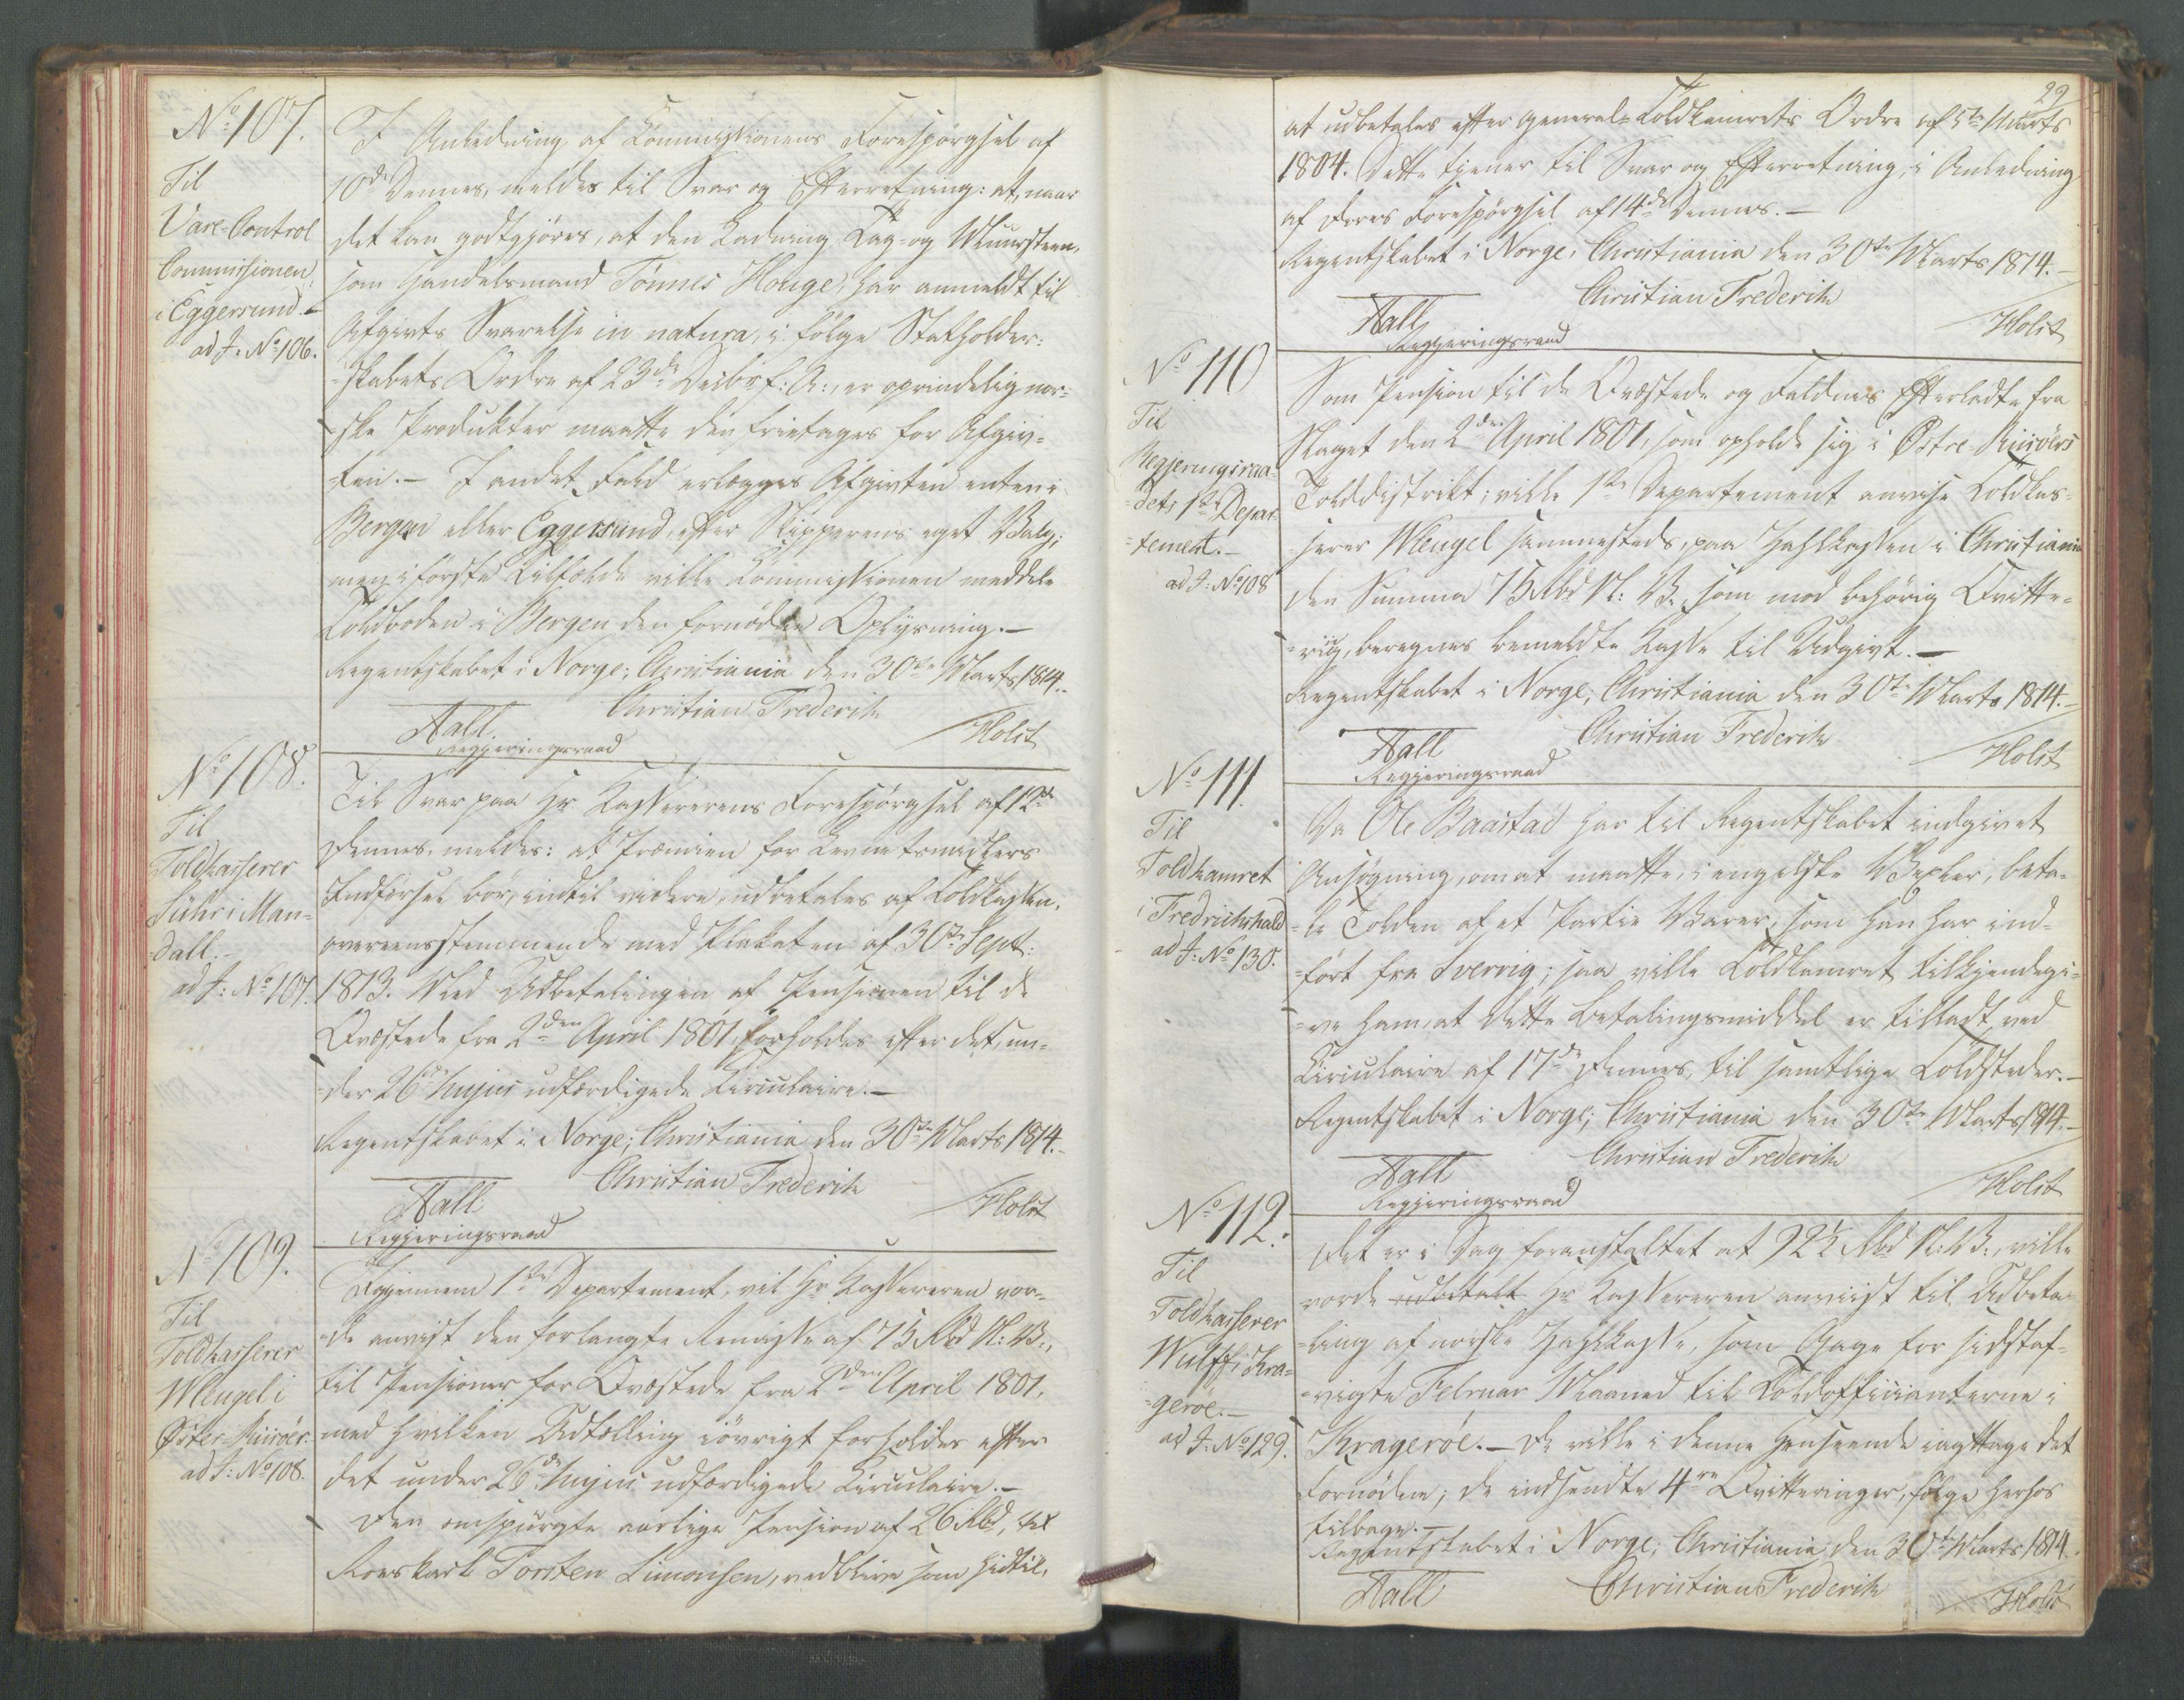 No 107.
Til
Vare-Control
Commissionen
i Eggersund.-
ad J: No 106.
I Anledning af Kommissionens Forespørgsel af
10de Dennes, meldes til Svar og Efterretning: at, naar
det kan godtgjøres, at den Ladning Tag- og Muursteen,
som Handelsmand Tönnes Houge, har anmeldt til
Afgivts Svarelse in natura, i følge Statholder-
-skabets Ordre af 23de Decbr f: A:, er oprindelig nor-
-ske Produkter maatte den fritages for Afgiv-
-ten.- I andet Fald erlægges Afgivten enten i
Bergen eller Eggersund, efter Skipperens eget Valg;
men i første Tilfælde ville Kommissionen meddele
Toldboden i Bergen den fornødne Oplysning.-
Regentskabet i Norge; Christiania den 30te Marts 1814.-
Christian Frederik
Aall
Regjeringsraad
Holst
No 108.
Til
Toldkasserer
Lühr i Man-
dall.-
ad J: No 107.
Til Svar paa Hr Kassererens Forespørgsel af 12te
Dennes, meldes: at Præmien for Levnetsmidlers
Indførsel bør, indtil videre, udbetales af Toldkassen,
overeensstemmende med Plakaten af 30te Septr:
1813. Ved Udbetalingen af Pensionen til de
Qvæstede fra 2den April 1801, forholdes efter det, un-
-der 26de hujus udfærdigede Circulaire.-
Regentskabet i Norge; Christiania den 30te Marts 1814.-
Christian Frederik
Aall
Regjeringsraad
Holst
No 109.
Til
Toldkasserer
Wleugel i
Øster-Riisöer.
ad J: No 108.
Igjennem 1ste Departement, vil Hr Kassereren vor-
-de anvist den forlangte Remisse af 75 Rbd N: V:,
til Pensioner for Qvæstede fra 2den April 1801,
med hvilken Udtælling iøvrigt forholdes efter
det under 26de hujus udfærdigede Circulaire.-
Den omspurgte aarlige Pension af 26 Rbd, til
Roerskarl Torsten Simonsen, vedblive som hidtil,
29
at udbetales efter General-Toldkamrets Ordre af 5te Marts
1804. Dette tjener til Svar og Efterretning, i Anledning
af Deres Forespørgsel af 14de Dennes.-
Regentskabet i Norge, Christiania den 30te Marts 1814.-
Christian Frederik
Aall
Regjeringsraad
Holst
No 110
Til
Regjeringsraa-
-dets 1ste Depar-
-tement.-
ad J: No 108
Som Pension til de Qvæstede og Faldnes Efterladte fra
Slaget den 2den April 1801, som opholde sig i Østre-Riisöers
Tolddistrikt; ville 1ste Departement anvise Toldkas-
-serer Wleugel sammesteds, paa Zahlkassen i Christiania
den Summa 75 Rbd N: V:, som mod behørig Qvitte-
-ring, beregnes bemeldte Kasse til Udgivt.-
Regentskabet i Norge; Christiania den 30te Marts 1814.-
Christian Frederik
Aall
Regjeringsraad
Holst
No 111.
Til
Toldkamret
i Fredrichshald
ad J: No 130.
Da Ole Baastad har til Regentskabet indgivet
Ansøgning, om at maatte, i engelske Vexler, beta-
-le Tolden af et Partie Varer, som han har ind-
-ført fra Sverrig; saa ville Toldkamret tilkjendegi-
-ve ham, at dette Betalingsmiddel er tilladt ved
Circulaire af 17de Dennes, til samtlige Toldsteder.-
Regentskabet i Norge; Christiania den 30te Marts 1814.-
Christian Frederik
Aall
Regjeringsraad
Holst
No 112.
Til
Toldkasserer
Wulff i Kra-
-geröe.-
ad J: No 129.
Det er i Dag foranstaltet at 92½ Rbd N: V:, ville
vorde udbetalt Hr Kassereren anviist til Udbeta-
-ling af norske Zahlkasse, som Gage for sidstaf-
-vigte Februar Maaned til Toldofficianterne i
Krageröe.- De ville i denne Henseende iagttage det
Fornødne; de indsendte 4re Qvitteringer, følge herhos
tilbage.-
Regentskabet i Norge; Christiania, den 30te Marts 1814.
Christian Frederik
Aall
Holst